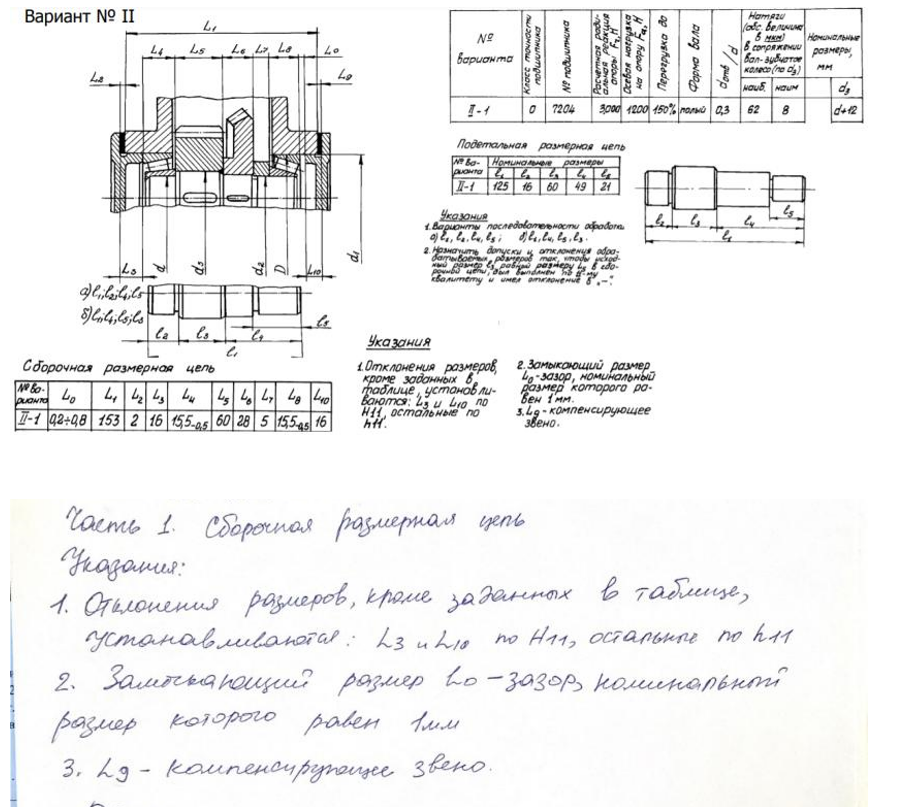 Вариант № II
L₁
L₄ L₅ L₆ L₇ L₈ L₀
L₂ L₉
L₃ d d₃ d₂ D L₁₀ d₁
а) l₁; l₂; l₄; l₅
б) l₁; l₄; l₅; l₃
l₂ l₃ l₄ l₅
l₁
Сборочная размерная цепь
№ ва-рианта L₀ L₁ L₂ L₃ L₄ L₅ L₆ L₇ L₈ L₁₀
II-1 0,2÷0,8 153 2 16 15,5₋₀,₅ 60 28 5 15,5₋₀,₅ 16
№ варианта
Класс точности подшипника
№ подшипника
Расчетная ради-
альная реакция
опоры
Осевая нагрузка
на опору
Перегрузка до
Форма вала
dотв / d
Натяги
(абс. величина
в мкм)
в сопряжении
вал-зубчатое
колесо (по d₃)
наиб. наим
Номинальные
размеры,
мм
d₃
II-1 0 7204 3000 1200 150% полый 0,3 62 8 d+12
Подетальная размерная цепь
№ ва-рианта Номинальные размеры
l₁ l₂ l₃ l₄ l₅
II-1 125 16 60 49 21
l₂ l₃ l₄ l₅
l₁
Указания
1. Варианты последовательности обработки
а) l₁, l₂, l₄, l₅; б) l₁, l₄, l₅, l₃.
2. Назначить допуски и отклонения обра-
батываемых размеров так, чтобы исход-
ный размер l₃, равный размеру L₅ в сбо-
рочной цепи, был выполнен по 11-му
квалитету и имел отклонение в „−”.
Указания
1. Отклонения размеров,
кроме заданных в
таблице, устанавли-
ваются: L₃ и L₁₀ по
H11, остальные по
h11.
2. Замыкающий размер
L₀-зазор, номинальный
размер которого ра-
вен 1 мм.
3. L₉ - компенсирующее
звено.
Часть 1. Сборочная размерная цепь
Указания:
1. Отклонения размеров, кроме заданных в таблице,
устанавливаются: L3 и L10 по H11, остальные по h11
2. Замыкающий размер L0 – зазор, номинальный
размер которого равен 1мм
3. L9 – компенсирующее звено.